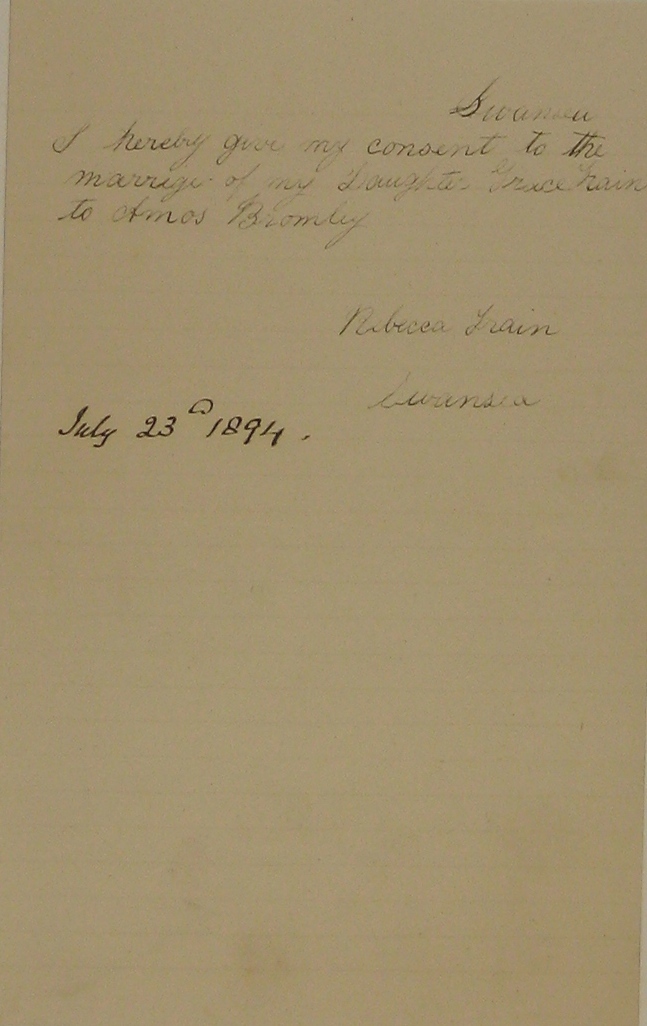 Swansea
I hereby give my consent to the
marrige of my Daughter Grace Train
to Amos Bromley
Rebecca Train
Swansea
July 23d 1894.